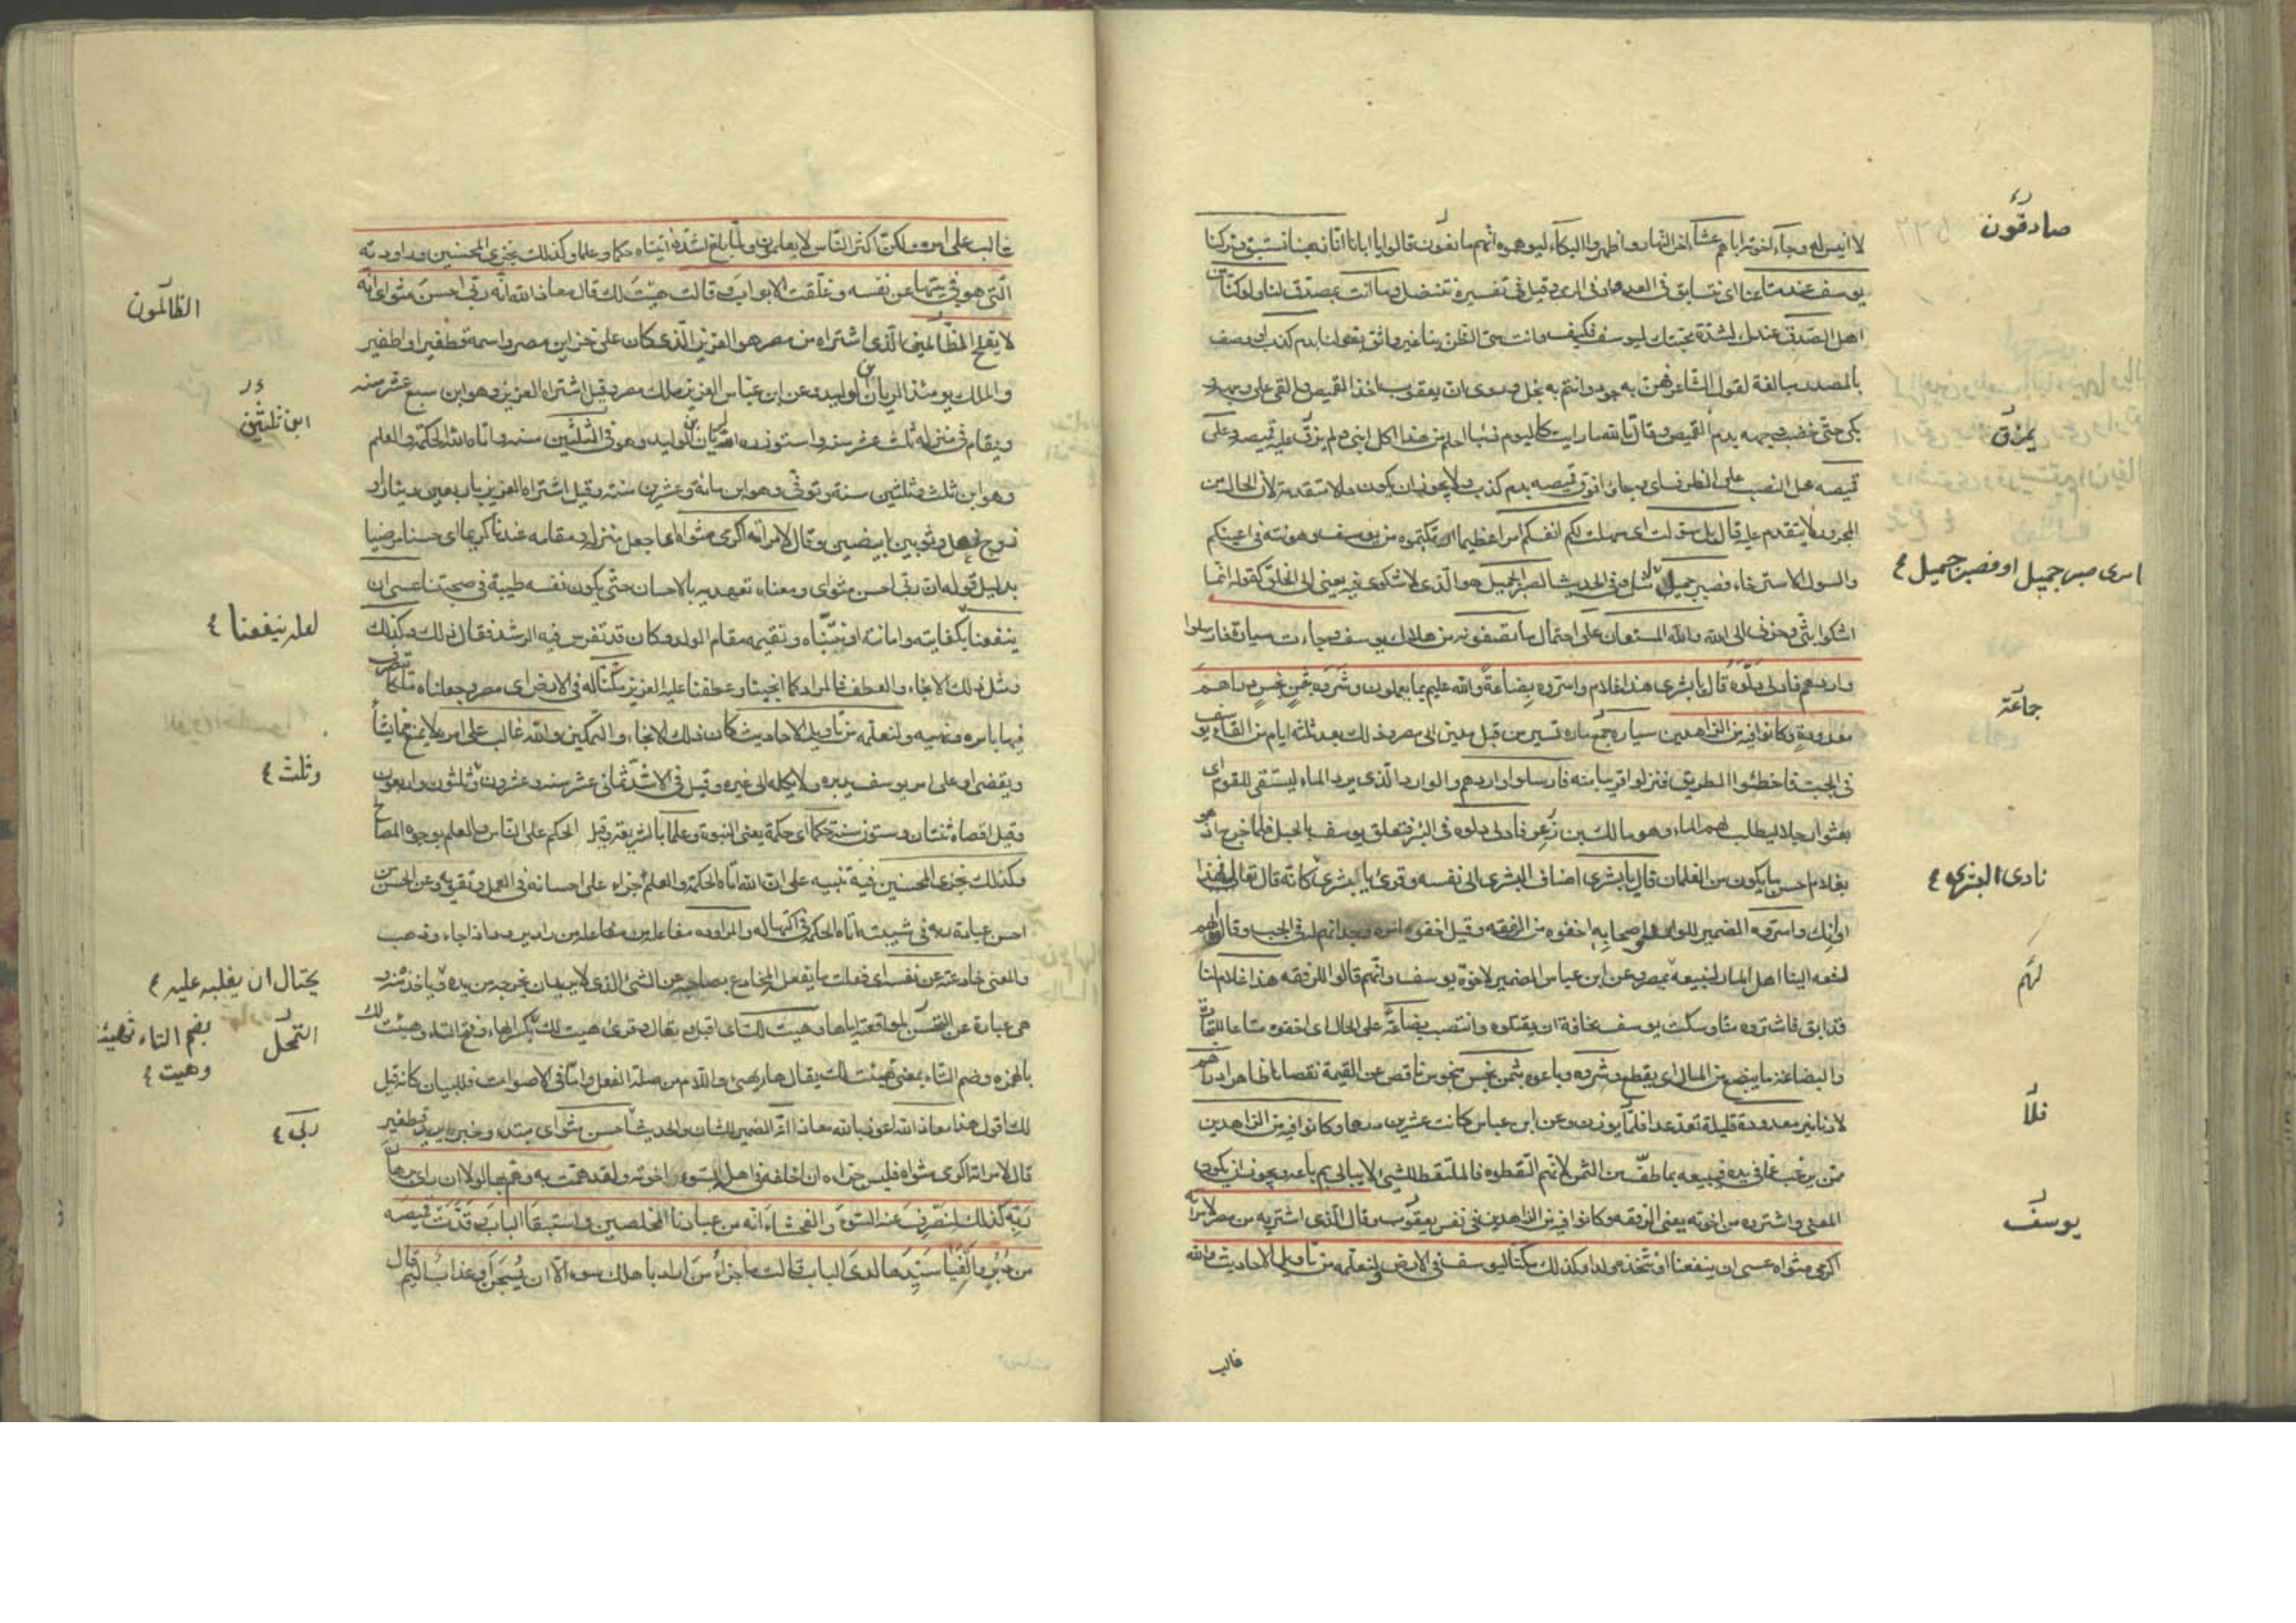 لا انيس له وجآء اخوته اباهم عشآء اخر النهار واظهروا البكآء ليوهموه انهم صادقون قالوا يا ابانا انا ذهبنا نستبق وتركنا
يوسف عند متاعنا اى نتسابق فى العدو او فى الرمى وقيل فى تفسيره ننتضل وما انت بمصدق لنا ولو كنا من
اهل الصدق عندك لشدة محبتك ليوسف فكيف وانت سئ الظن بنا غير واثق بقولنا بدم كذب وصف
بالمصدر مبالغة كقول الشاعر فهن به جود وانتم به بخل وروى ان يعقوب اخذ القميص والقى على وجهه و
بكى حتى خضب وجهه بدم القميص وقال تالله ما رايت كاليوم ذئبا احلم من هذا اكل ابنى ولم يمزق عليه قميصه وعلى
قميصه محل النصب على الظرف اى وجاؤا فوق قميصه بدم كذب ولا يجوز ان يكون حالا متقدمة لان الحال من
المجرور لا يتقدم عليه قال بل سولت اى سهلت لكم انفسكم امرا عظيما ارتكبتموه من يوسف وهونته فى اعينكم
والسول الاسترخاء فصبر جميل وفى الحديث الصبر الجميل هو الذى لا شكوى فيه يعنى الى الخلق كقوله انما
اشكوا بثى وحزنى الى الله والله المستعان على احتمال ما تصفونه من هلاك يوسف وجاءت سيارة فارسلوا
واردهم فادلى دلوه قال يا بشرى هذا غلام واسروه بضاعة والله عليم بما يعملون وشروه بثمن بخس دراهم
معدودة وكانوا فيه من الزاهدين سيارة جماعة مارة تسير من قبل مدين الى مصر وذلك بعد ثلثة ايام من القاء يوسف
فى الجب فاخطئوا الطريق فنزلوا قريبا منه فارسلوا واردهم والوارد الذى يرد الماء ليستقى للقوم اى
بعثوا رجلا يطلب لهم الماء وهو مالك بن زعر فادلى دلوه فى البئر فتعلق يوسف بالحبل فلما خرج اذا هو
بغلام احسن ما يكون من الغلمان قال يا بشرى اضاف البشرى الى نفسه وقرئ يا بشرى كانه قال تعالى فهذا
اوانك واسروه الضمير للوارد واصحابه اخفوه من الرفقه وقيل اخفوا امره ووجدانهم له فى الجب وقالوا لهم
دفعه الينا اهل الماء لنبيعه بمصر وعن ابن عباس الضمير لاخوة يوسف وانهم قالوا للرفقه هذا غلام لنا
قد ابق فاشتروه منا وسكت يوسف مخافة ان يقتلوه وانتصب بضاعة على الحال اى اخفوه متاعا للتجارة
والبضاعة ما يبضع من المال اى يقطع وشروه وباعوه بثمن بخس مبخوس ناقص عن القيمة نقصانا ظاهرا دراهم
لا دنانير معدودة قليلة تعد عدا فلا يوزن وعن ابن عباس كانت عشرين درهما وكانوا فيه من الزاهدين
ممن يرغب عما فى يده فيبيعه بما طف من الثمن لانهم التقطوه فالملتقط للشئ لا يبالى بم باعه ويجوز ان يكون
المعنى واشتروه من اخوته يعنى الرفقه وكانوا فيه من الزاهدين فى نفس يعقوب وقال الذى اشتريه من مصر لامراته
اكرمى مثواه عسى ان ينفعنا او نتخذه ولدا وكذلك مكنا ليوسف فى الارض ولنعلمه من تاويل الاحاديث والله
غالب
صادقون
يمزق
امرى صبر جميل او فصبر جميل
جماعة
نادى البشرى
لهم
فلا
يوسف
غالب على امره ولكن اكثر الناس لا يعلمون ولما بلغ اشده اتيناه حكما وعلما وكذلك نجزى المحسنين وراودته
التى هو فى بيتها عن نفسه وغلقت الابواب وقالت هيت لك قال معاذ الله انه ربى احسن مثواى انه
لا يفلح الظالمين الذى اشتراه من مصر هو العزيز الذى كان على خزاين مصر واسمه قطفير او اطفير
والملك يومئذ الريان بن الوليد وعن ابن عباس العزيز ملك مصر وقيل اشتراه العزيز وهو ابن سبع عشر سنه
واقام فى منزله ثلث عشر سنه واستوزره الريان بن الوليد وهو ابن الثلثين سنه واتاه الله الحكمة والعلم
وهو ابن ثلث وثلثين سنة وتوفى وهو ابن مائة وعشرين سنة وقيل اشتراه العزيز باربعين دينارا و
زوج نعل وثوبين ابيضين وقال لامراته اكرمى مثواه اى اجعلى منزله ومقامه عندنا كريما اى حسنا مرضيا
بدليل قوله ان ربى احسن مثواى ومعناه تعهديه بالاحسان حتى يكون نفسه طيبة فى صحبتنا عسى ان
ينفعنا بكفايته وامانته او نتبناه ونقيمه مقام الولد وكان قد تفرس فيه الرشد فقال ذلك وكذلك
ومثل ذلك الانجاء والعطف فالمراد كما انجينا وعطفنا عليه العزيز مكنا له فى الارض اى مصر وجعلناه ملكا يتصرف
فيها بامره ونهيه ولنعلمه من تاويل الاحاديث كان ذلك الانجاء والتمكين والله غالب على امره لا يمنع عما يشاء
ويقضى او على امر يوسف يدبره ولا يكله الى غيره وقيل فى الاشد ثمانى عشر سنه وعشرون وثلثون واربعون
وقيل اقصاه ثنتان وستون سنة حكما اى حكمة يعنى النبوة وعلما بالشريعة وقيل الحكم على الناس والعلم بوجوه المصالح
وكذلك نجزى المحسنين فيه تنبيه على ان الله اتاه الحكمة والعلم جزاء على احسانه فى العمل وتقويه وعن الحسن من
احسن عبادة ربه فى شبيبته اتاه الحكمة فى اكتهاله والمراوده مفاعلة من راد يرود اذا جاء وذهب
والمعنى خادعته عن نفسه اى فعلت ما يفعل المخادع بصاحبه عن الشئ الذى لا يريد ان يخرجه من يده فياخذه منه و
هى عبارة عن التمحل لمواقعته اياها وهيت لك اى اقبل وتعال وقرئ هيت لك بكسر الهاء وفتح التاء وهئت لك
بالهمزه وضم التاء بمعنى تهيئت لك يقال هاء يهئ واللام من صلة الفعل واما فى الاصوات فللبيان كانه قيل
لك اقول هذا معاذ الله اعوذ بالله معاذا انه الضمير للشان والحديث احسن مثواى مبتدء وخبر يريد قطفير
قال لامراته اكرمى مثواه فليس جزاه ان اخلفه فى اهله السوء ولقد همت به وهم بها لولا ان راى برهان
ربه كذلك لنصرف عنه السوء والفحشاء انه من عبادنا المخلصين واستبقا الباب وقدت قميصه
من دبر والفيا سيدها لدى الباب قالت ما جزاء من اراد باهلك سوءا الا ان يسجن او عذاب اليم قال
الظالمون
ابن ثلثين
لعله ينفعنا
وثلث
يحتال ان يغلبه عليه
التمحل
بضم التاء
وهيت
ربى